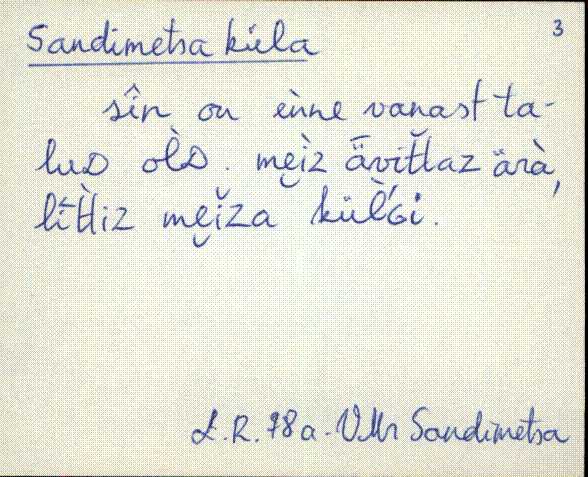 3
Sandimetsa küla
sîn on ènne vanast ta-
luD olD. mei̯z äviťťaz ärà,
liťťiz mei̯za külGi.
L.R. 78a. VMr Sandimetsa